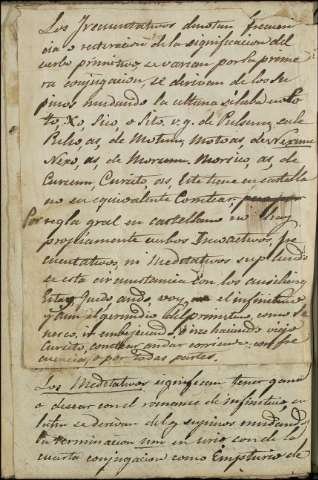 Los Frecuentativos denotan frecuen
cia o reiteracion de la significacion del
verbo primitivo, se varian por la prime
ra conjugacion, se derivan de los su
pinos mudando la ultima silaba en to
Xo, Sico, o Sito, v.g. de Pulsum, sale
Pulso, as, de Motum, Motoas, de Nexum
Nexo, as, de Morsum. Morsico, as, de
Cursum, Cursito, as, este tiene en castella
no su equivalente Corretear,
Por regla gral en castellano no hay
propiamente verbos Incoativos, fre
cuentativos, ni Meditativos supliendo
se esta circunstancia con los auxiliares
Estoy, ando, voy, el infinitivo
y aun el gerundio del primitivo, como
me haciendo viejo
Cursito, andar corriendo con fre
cuencia, o por todas partes.
Los Meditativos significan tener gana
o desear con el romance de infinitivo, en
latin se derivan de los supinos mudando
la terminacion um en urio son de la
cuarta conjugacion como Empturio de